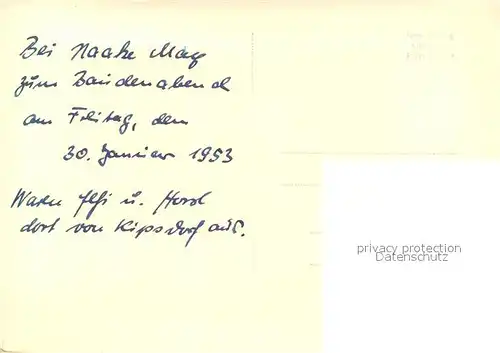 Bei Naake May
zum Baudenabend
am Freitag, dem
30. Januar 1953
Waren Elfi u. Horst
dort von Kipsdorf aus.
privacy protection
Datenschutz